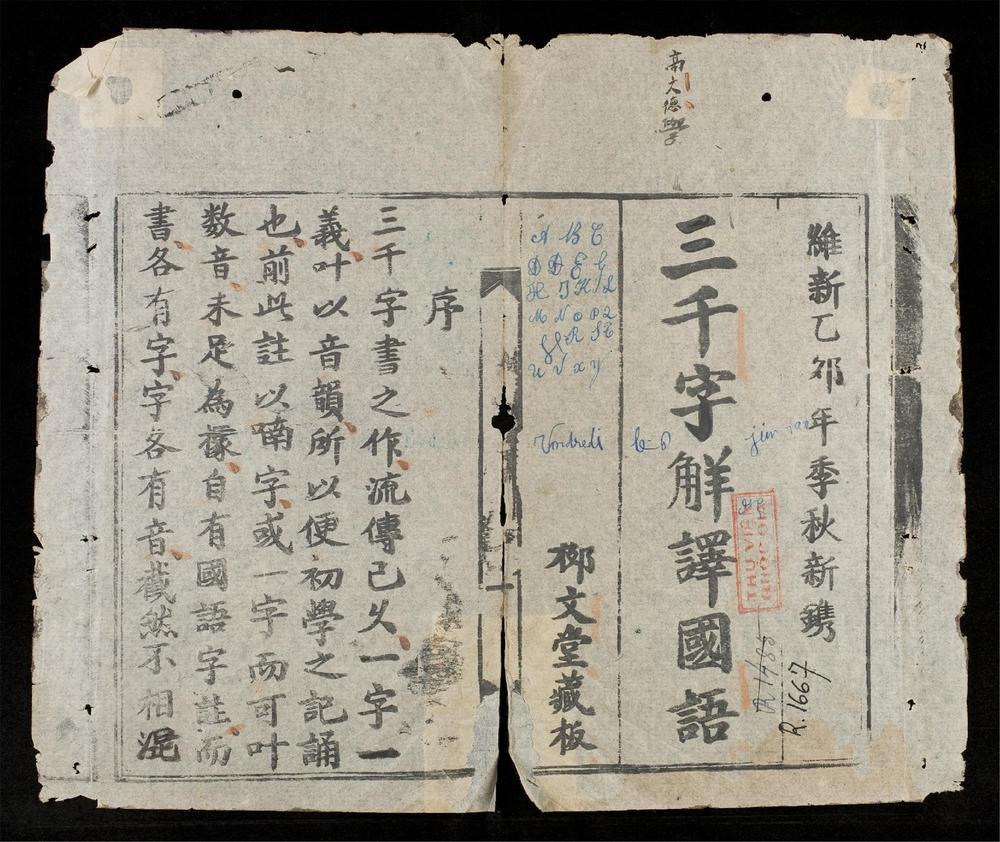 高大德學
維新乙卯年季秋新鐫
三千字解譯國語
A B C
D Đ E G
H I K L
M N O P Q
R S T
U V X Y
Vendredi le
柳文堂藏板
THƯ VIỆN
R.1667
序
三千字書之作流傳已久一字一
義叶以音韻所以便初學之記誦
也前此註以喃字或一字而可叶
数音未足為據自有國語字註而
書各有字字各有音截然不相混